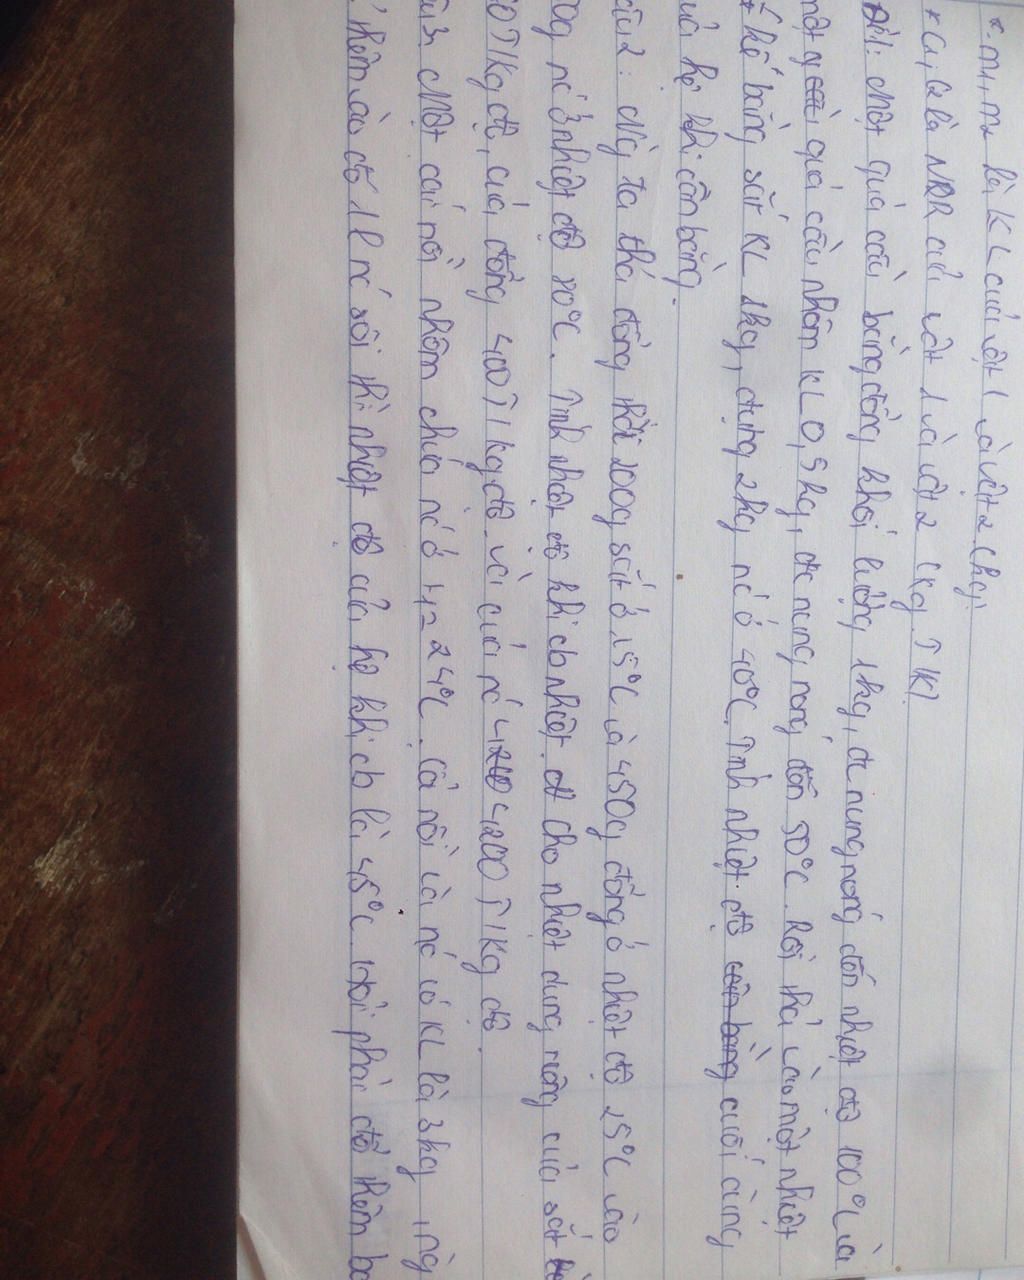 * m1, m2 là KL của vật 1 và vật 2 (kg)
* C1, C2 là NDR của vật 1 và vật 2 (kg J/K)
Một quả cầu bằng đồng khối lượng 1kg, đc nung nóng đến nhiệt độ 100°C và
một quả cầu nhôm KL 0,5kg, đc nung nóng đến 50°C. Rồi thả vào một nhiệt
kế bằng sắt KL 1kg, đựng 2kg nc ở 40°C. Tính nhiệt độ cuối cùng
của hệ khi cân bằng.
câu 2: Ng ta thả đồng thời 200g sắt ở 15°C và 450g đồng ở nhiệt độ 25°C vào
nc ở nhiệt độ 20°C. Tính nhiệt độ khi cb nhiệt. Cho nhiệt dung riêng của sắt
60J/kg độ, của đồng 400J/kg độ và của nc 4200J/kg độ.
Một cái nồi nhôm chứa nc ở t1= 24°C. Cả nồi và nc có KL là 3kg, ng
thêm vào đó 1l nc sôi thì nhiệt độ của hệ khi cb là 45°C. Hỏi phải đổ thêm